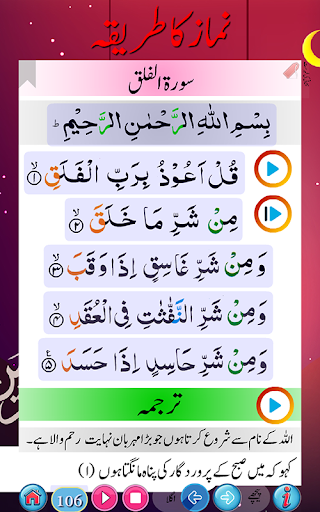 نماز کا طریقہ
سورۃ الفلق
بِسْمِ اللّٰهِ الرَّحْمٰنِ الرَّحِيْمِ ؕ
قُلْ اَعُوْذُ بِرَبِّ الْفَلَقِ ۙ﴿۱﴾
مِنْ شَرِّ مَا خَلَقَ ۙ﴿۲﴾
وَمِنْ شَرِّ غَاسِقٍ اِذَا وَقَبَ ۙ﴿۳﴾
وَمِنْ شَرِّ النَّفّٰثٰتِ فِی الْعُقَدِ ۙ﴿۴﴾
وَمِنْ شَرِّ حَاسِدٍ اِذَا حَسَدَ ﴿۵﴾
ترجمہ
اللہ کے نام سے شروع کرتا ہوں جو بڑا مہربان نہایت رحم والا ہے۔
کہو کہ میں صبح کے پروردگار کی پناہ مانگتا ہوں (۱)
106 اگلا پیچھے